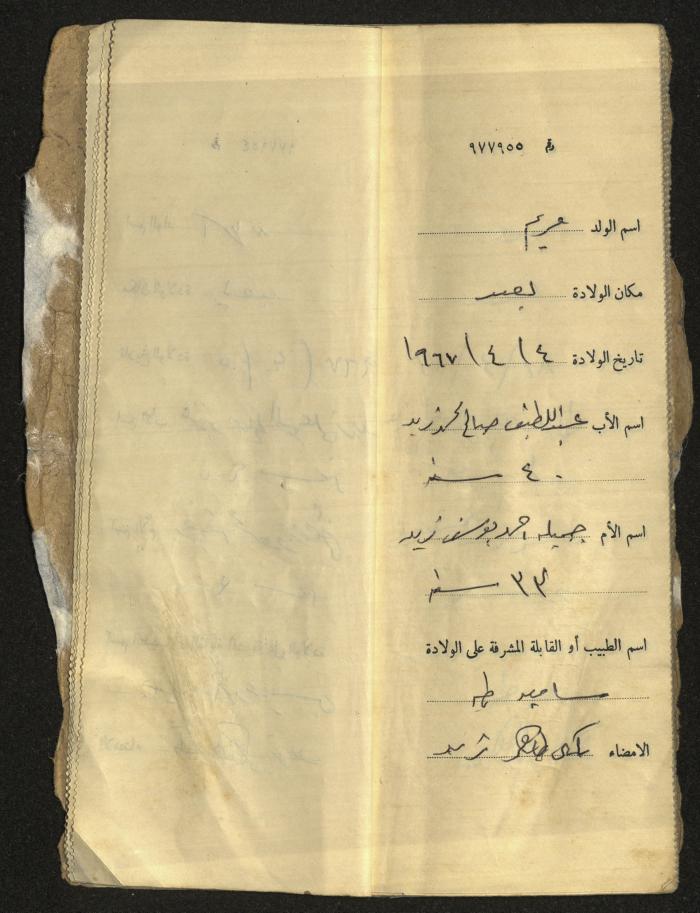 رقم ٩٧٧٩٥٥
اسم الولد مريم
مكان الولادة يعبد
تاريخ الولادة ٤ / ٤ / ١٩٦٧
اسم الأب عبد اللطيف صالح محمد زيد
٤٠ سنة
اسم الأم جميله احمد يوسف زيد
٣٣ سنة
اسم الطبيب أو القابلة المشرفة على الولادة
طه
الامضاء زيد